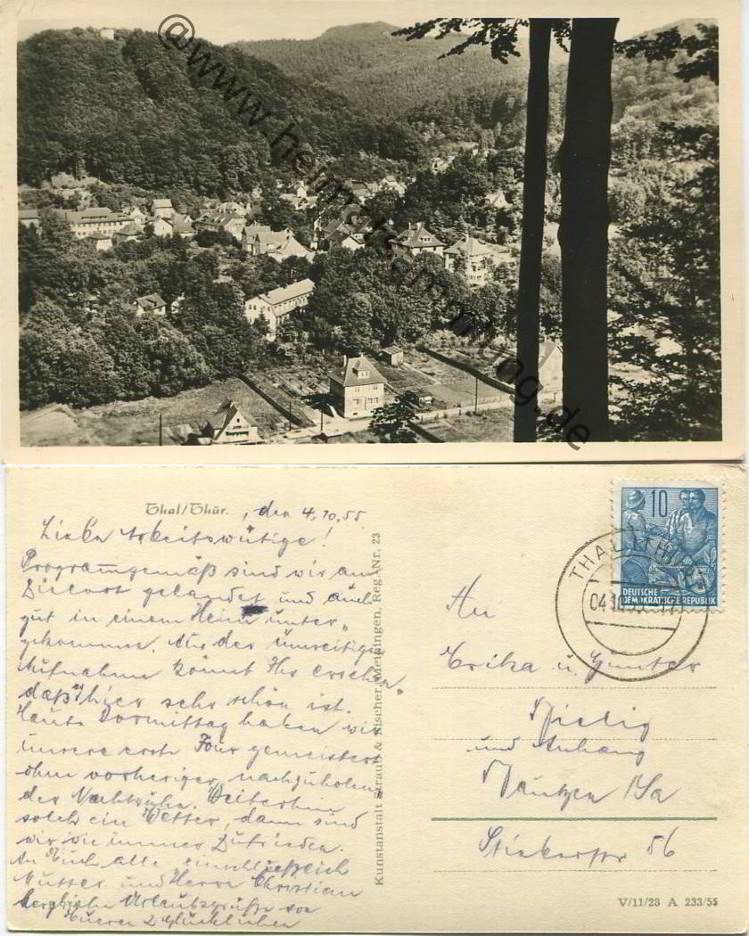 @www.heimatsammlung.de
Thal/Thür. , den 4.10.55
Liebe Arbeitswütige!
Programmgemäß sind wir am
Zielort gelandet und auch
gut in einem Heim unter-
gekommen. Aus der umseitigen
Aufnahme könnt Ihr ersehen,
daß hier sehr schön ist.
Heute Vormittag haben wir
unsere erste Tour gemeistert
ohne vorheriger, nachzuholen
der Nachtruhe. Weiterhin
solch ein Wetter, dann sind
wir wie immer zufrieden.
An Euch alle einschließlich
Mutter und Herrn Christian
herzliche Urlaubsgrüße von
Eueren 2 Glücklichen
Kunstanstalt Straub & Fischer, Meiningen, Reg./Nr. 23
10
DEUTSCHE
DEMOKRATISCHE REPUBLIK
THAL (THÜR)
An
Erika u. Günter
und Anhang
Bautzen /Sa
56
V/11/28 A 233/55